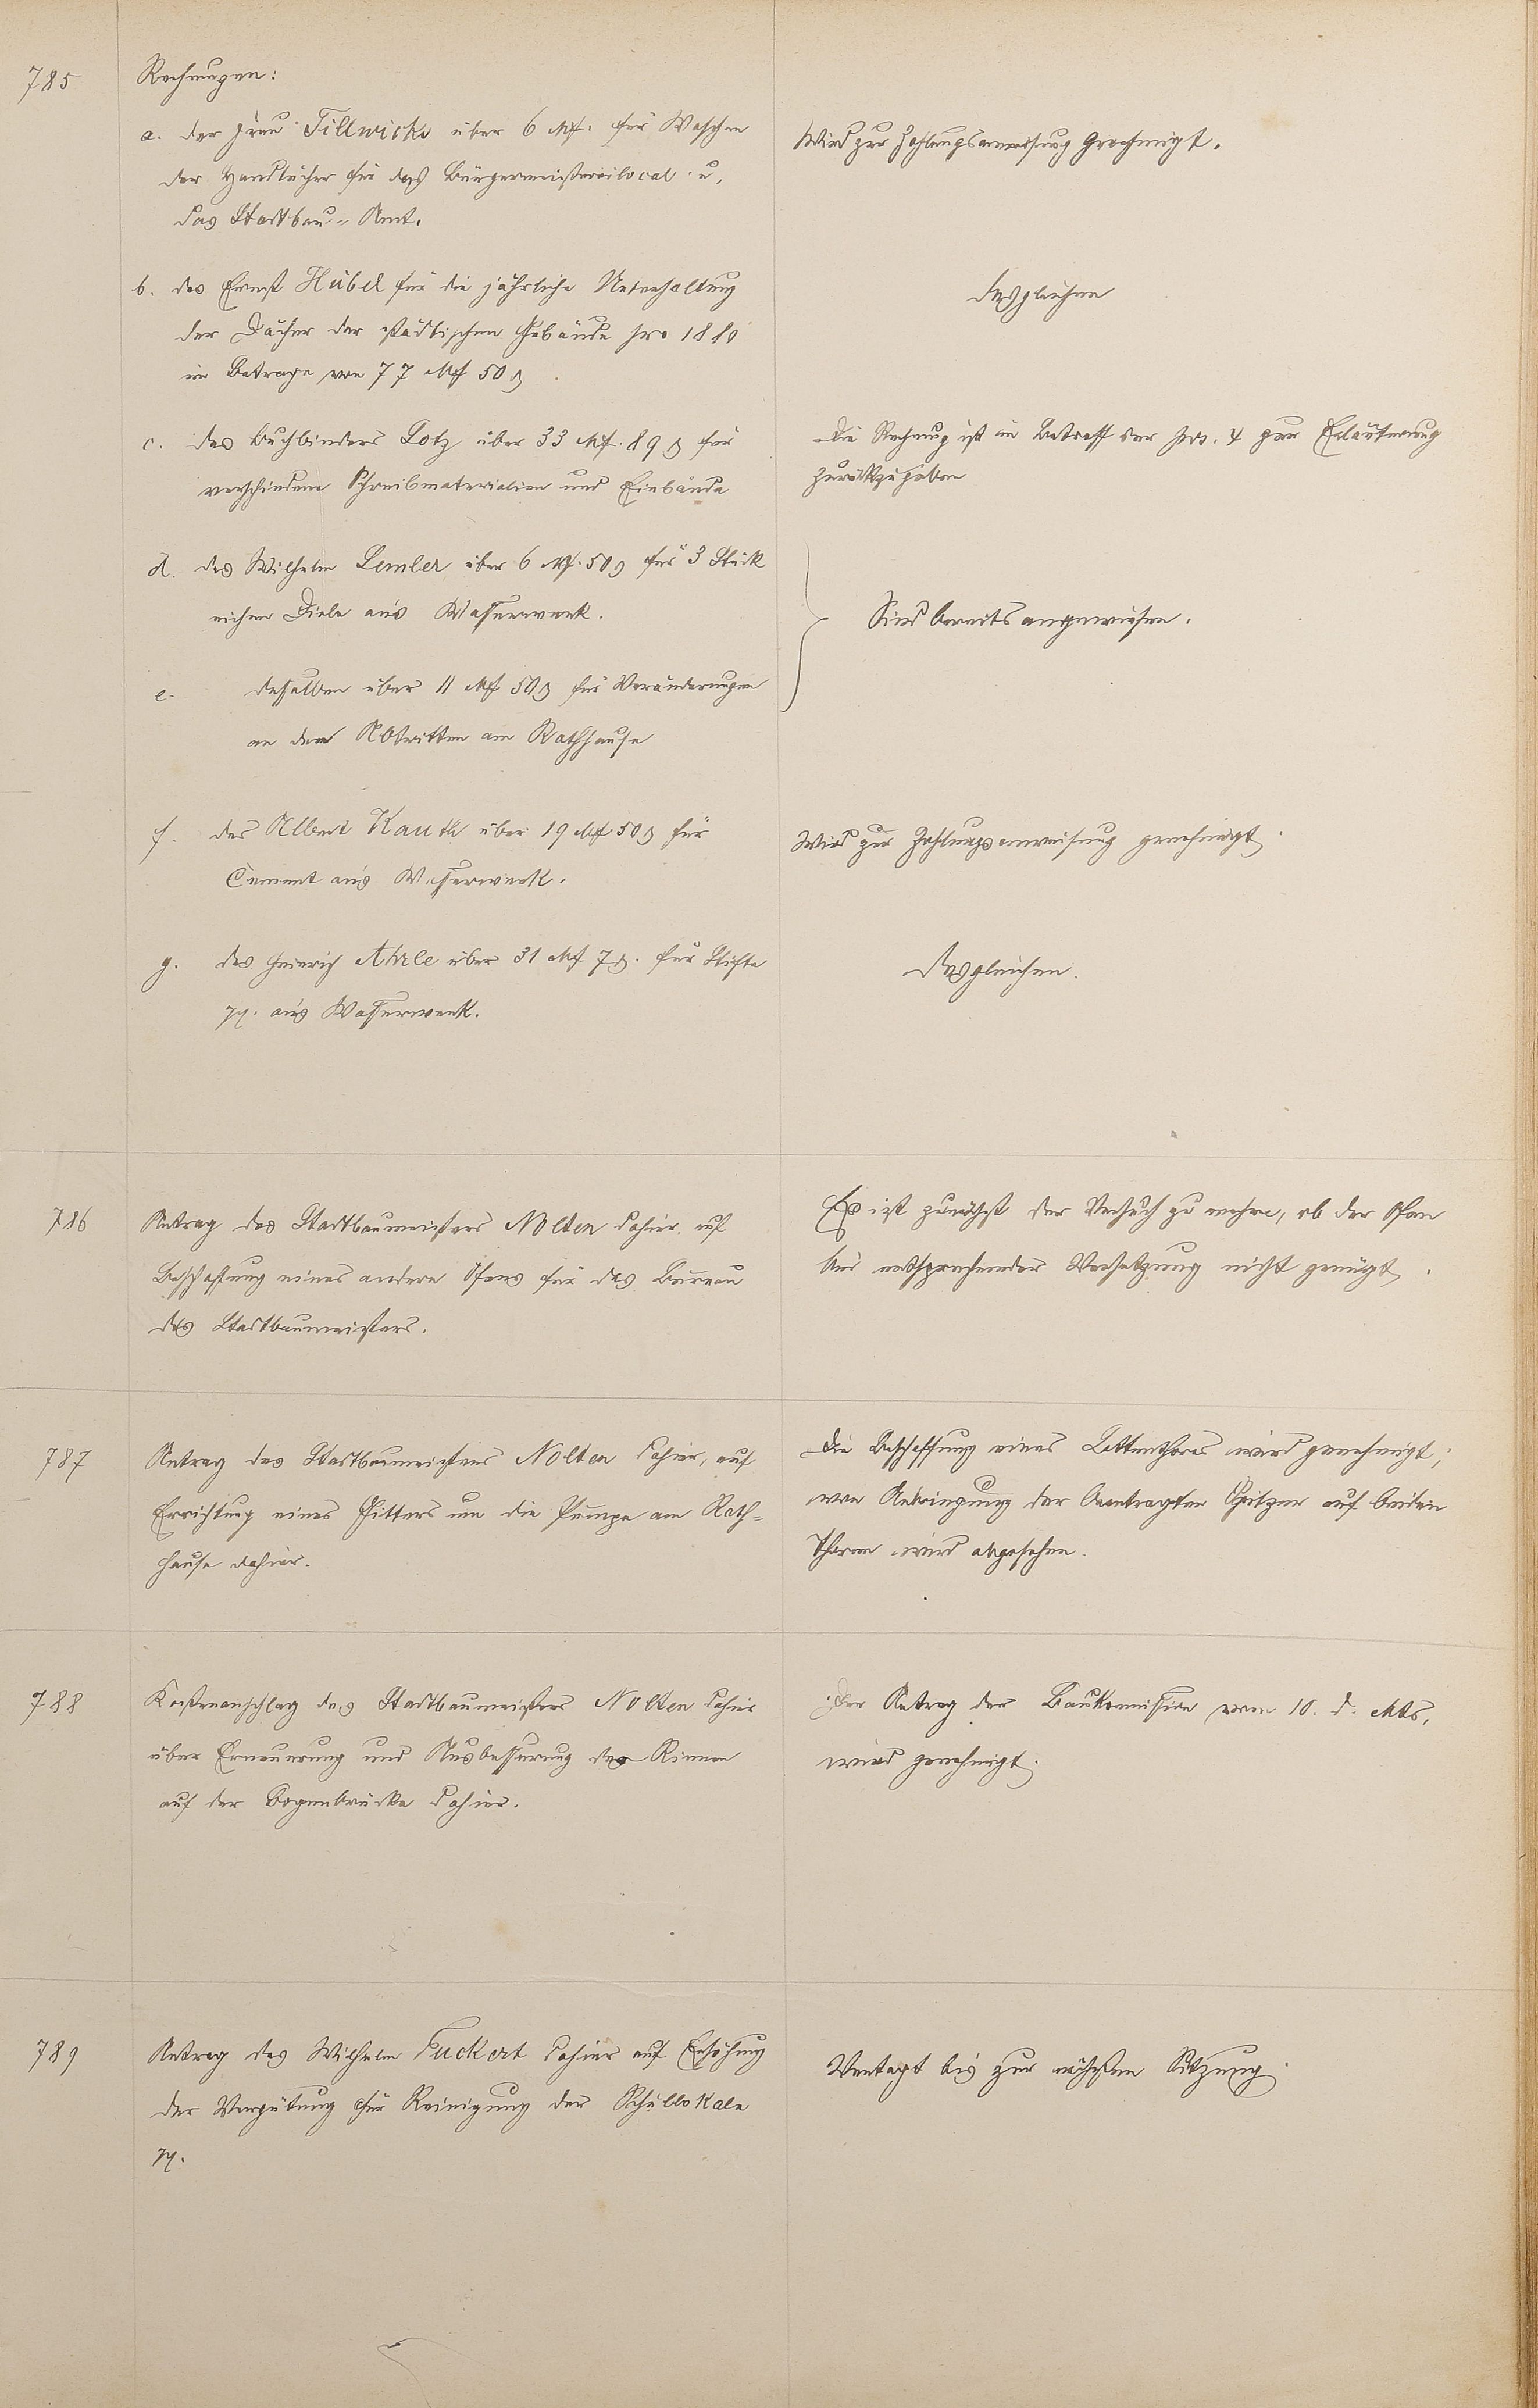 785
Rechnungen:
a. der Frau Tillwicks über 6 Mk. für Waschen
der Handtücher für das Bürgermeistereilocal u.
das Stadtbau-Amt.
Wird zur Zahlungsanweisung genehmigt.
b. des Ernst Hübel für die jährliche Unterhaltung
der Dächer der städtischen Gebäude pro 1880
im Betrage von 77 Mk 50 ₰
desgleichen
c. des Buchbinders Lotz über 33 Mk. 89 ₰ für
verschiedene Schreibmaterialien und Einbände
Die Rechnung ist in Betreff der pos. 4 zur Erläuterung
zurückzugeben
d. des Wilhelm Lemler über 6 Mk. 50 ₰ für 3 Stück
eichene Diele ans Wasserwerk.
Sind bereits angewiesen.
e. desselben über 11 Mk 50 ₰ für Veränderungen
an den Abtritten am Rathhause
f. des Albert Kauth über 19 Mk 50 ₰ für
Cement ans Wasserwerk.
Wird zur Zahlungsanweisung genehmigt.
g. des Heinrich Ahrle über 31 Mk 7 ₰. für Stifte
pp. ans Wasserwerk.
Desgleichen.
786
Antrag des Stadtbaumeisters Nolten dahier auf
Beschaffung eines andern Ofens für das Bureau
des Stadtbaumeisters.
Es ist zunächst der Versuch zu machen, ob der Ofen
bei entsprechender Versetzung nicht genügt.
787
Antrag des Stadtbaumeisters Nolten dahier, auf
Errichtung eines Gitters um die Pumpe am Rath-
hause dahier.
Die Beschaffung eines Lattenthores wird genehmigt;
von Anbringung der beantragten Spitzen auf beiden
Thoren wird abgesehen.
788
Kostenanschlag des Stadtbaumeisters Nolten dahier
über Erneuerung und Ausbesserung der Rinnen
auf der Bogenbrücke dahier.
Der Antrag der Baukommission vom 10. d. Mts.
wird genehmigt.
789
Antrag des Wilhelm Fuckert dahier auf Erhöhung
der Vergütung für Reinigung der Schullokale
pp.
Vertagt bis zur nächsten Sitzung.